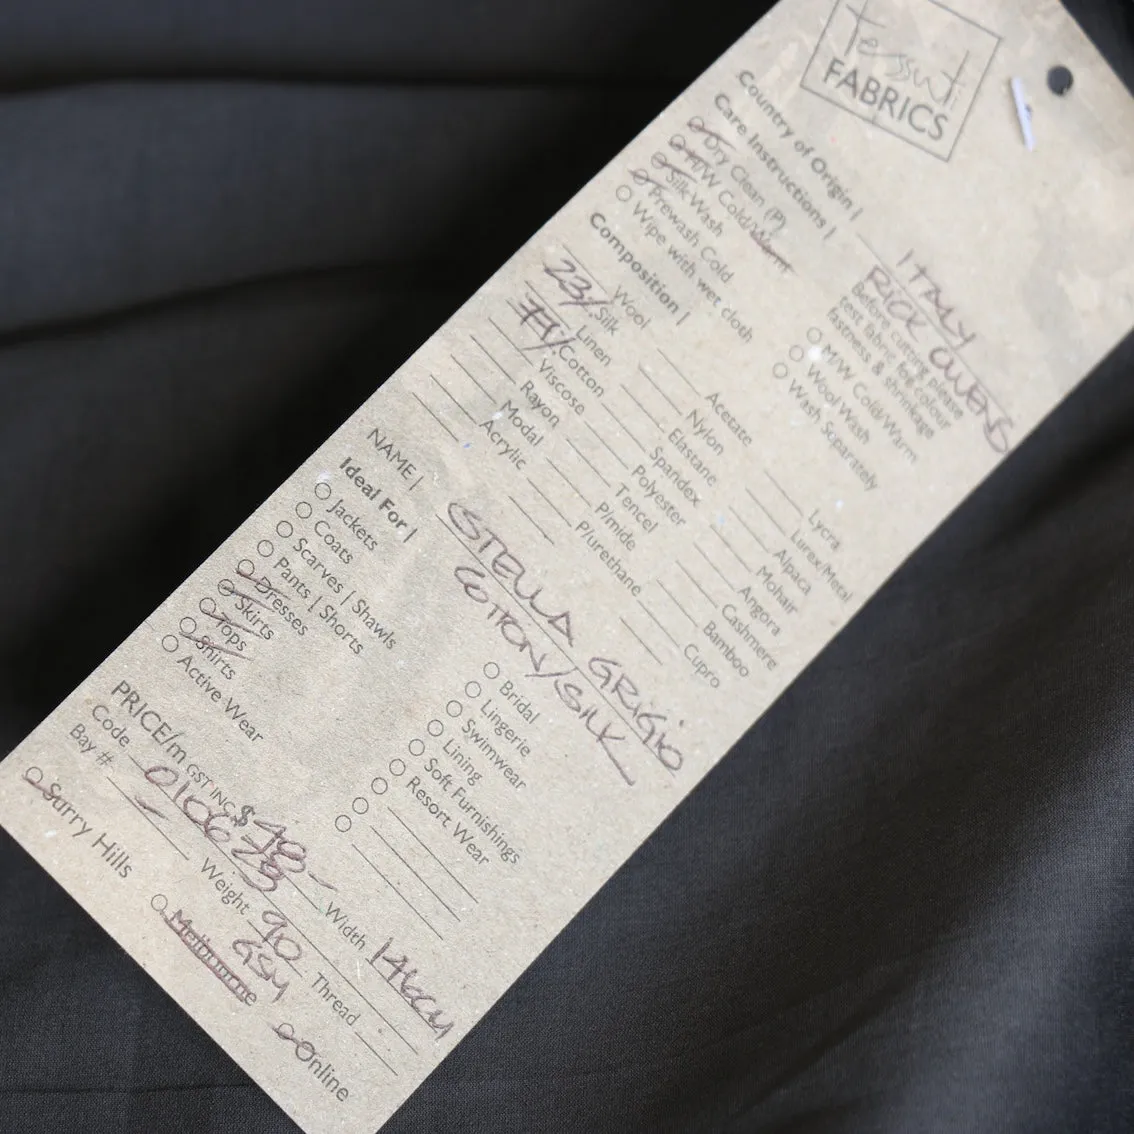 Tessuti
FABRICS
Country of Origin | ITALY
RICK OWENS
Care Instructions | Before cutting please
test fabric for colour
fastness & shrinkage
Dry Clean (P)
H/W Cold/Warm
Silk Wash
Prewash Cold
Wipe with wet cloth
M/W Cold/Warm
Wool Wash
Wash Separately
Composition |
Wool
23% Silk
Linen
77% Cotton
Viscose
Rayon
Modal
Acrylic
Acetate
Nylon
Elastane
Spandex
Polyester
Tencel
P/mide
P/urethane
Lycra
Lurex/Metal
Alpaca
Mohair
Angora
Cashmere
Bamboo
Cupro
NAME | STELLA GRIGIO
COTTON/SILK
Ideal For |
Jackets
Coats
Scarves | Shawls
Pants | Shorts
Dresses
Skirts
Tops
Shirts
Active Wear
Bridal
Lingerie
Swimwear
Lining
Soft Furnishings
Resort Wear
PRICE/m GST INC. $48- Width 146CM
Code 010623
Weight 90 GSM Thread
Bay # -
Surry Hills
Melbourne
Online